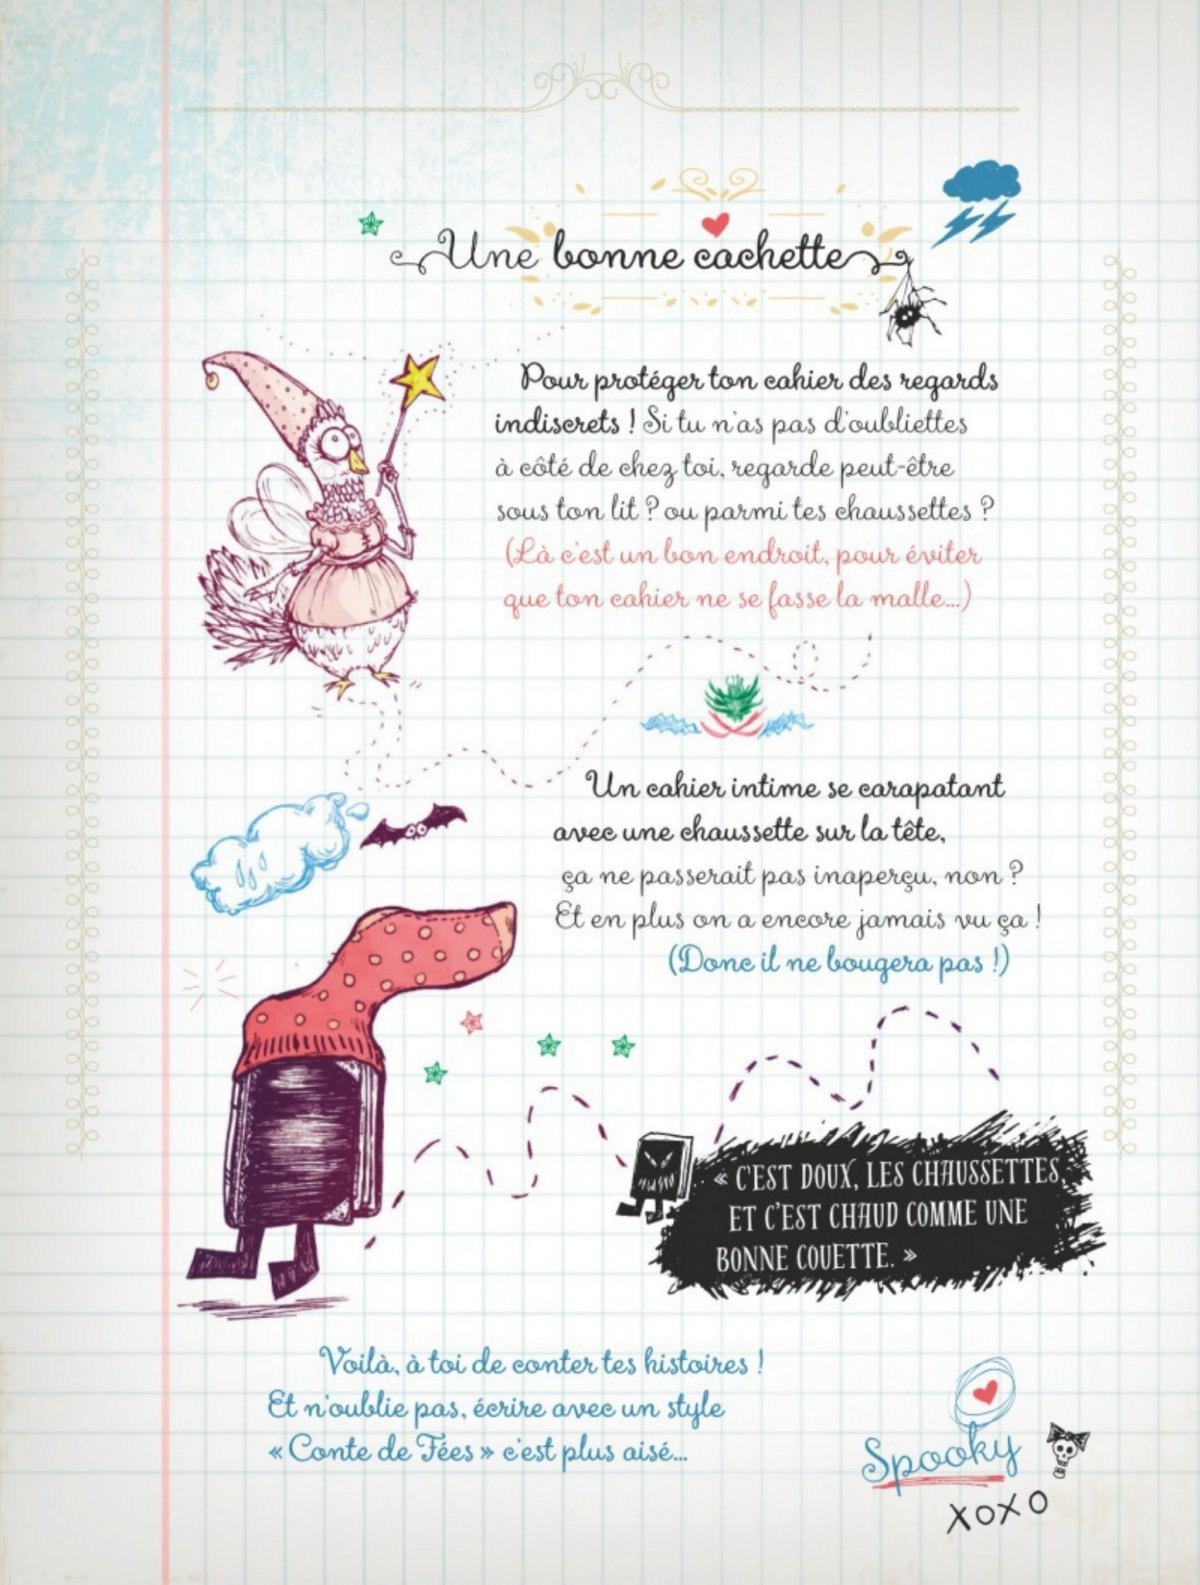 Une bonne cachette
Pour protéger ton cahier des regards
indiscrets ! Si tu n'as pas d'oubliettes
à côté de chez toi, regarde peut-être
sous ton lit ? ou parmi tes chaussettes ?
(Là c'est un bon endroit, pour éviter
que ton cahier ne se fasse la malle...)
Un cahier intime se carapatant
avec une chaussette sur la tête,
ça ne passerait pas inaperçu, non ?
Et en plus on a encore jamais vu ça !
(Donc il ne bougera pas !)
« C'EST DOUX, LES CHAUSSETTES,
ET C'EST CHAUD COMME UNE
BONNE COUETTE. »
Voilà, à toi de conter tes histoires !
Et n'oublie pas, écrire avec un style
« Conte de Fées » c'est plus aisé...
Spooky
XOXO